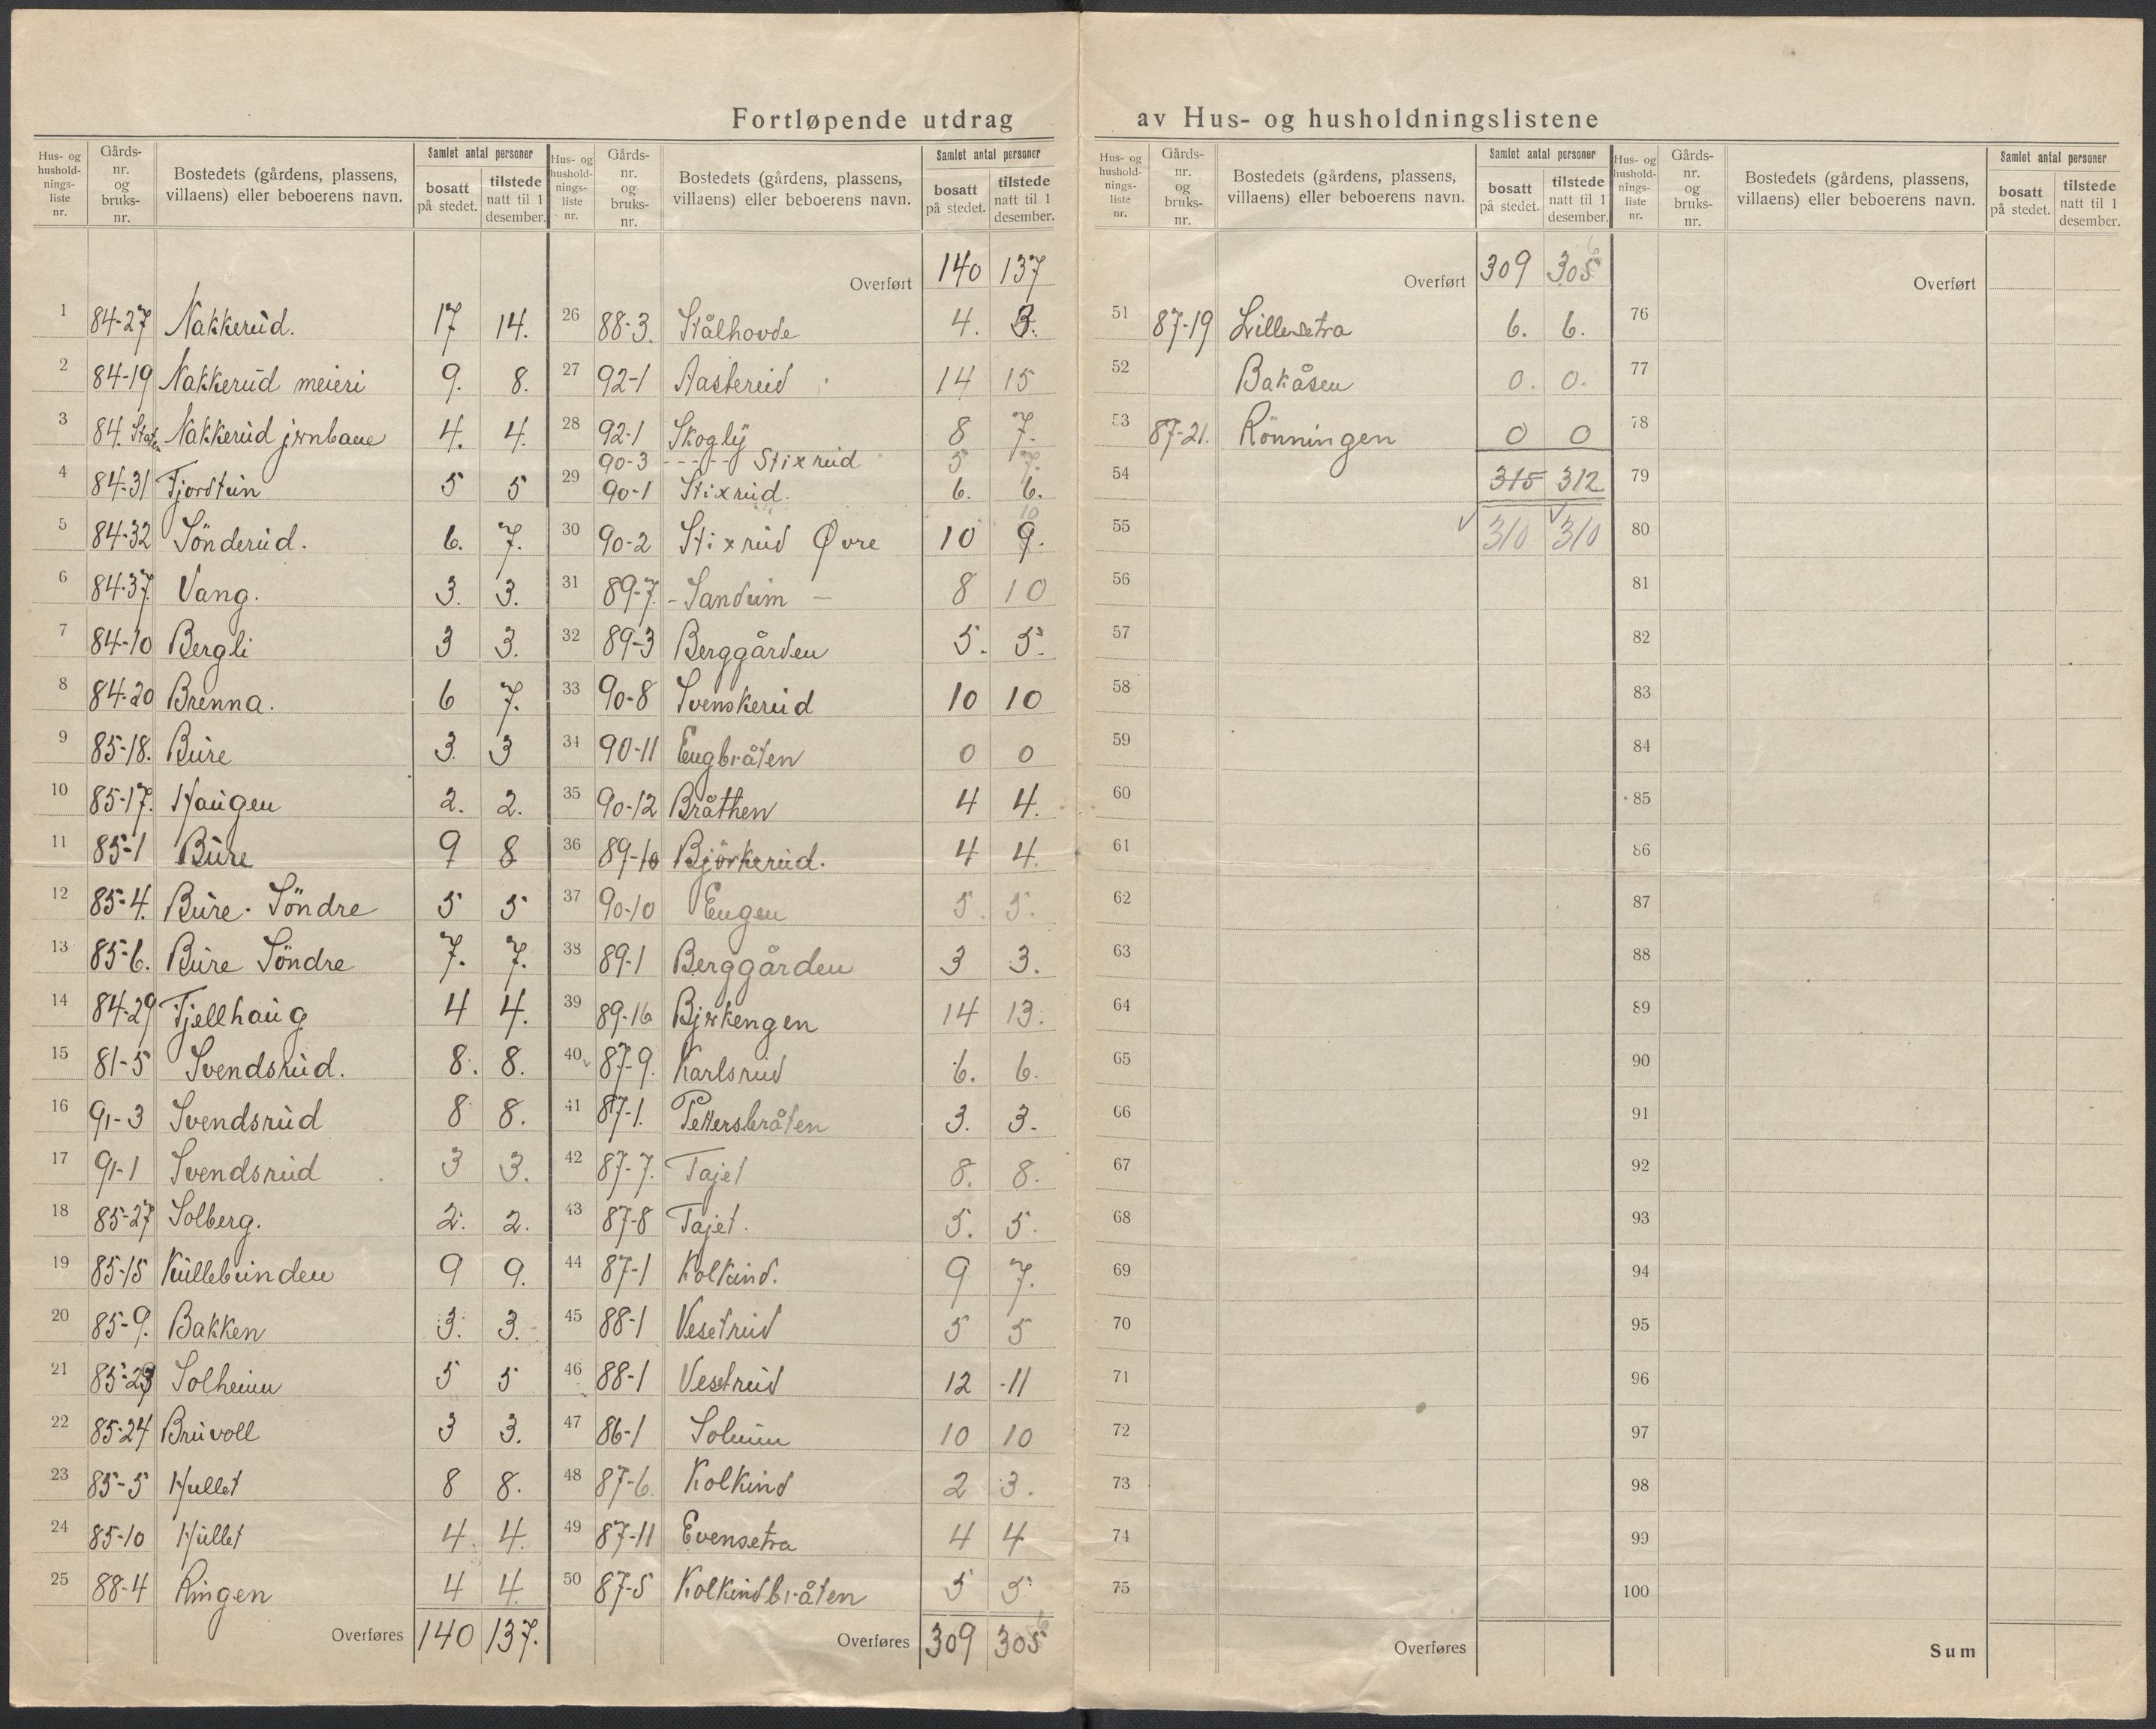 Fortløpende utdrag av Hus- og husholdningslistene
Hus- og hushold-nings-liste nr. Gårds-nr. og bruks-nr. Bostedets (gårdens, plassens, villaens) eller beboerens navn. Samlet antal personer bosatt på stedet. tilstede natt til 1 desember.
1 84-27 Nakkerud. 17 14.
2 84-19 Nakkerud meieri 9. 8.
3 84. Staten Nakkerud jernbane 4. 4.
4 84-31 Fjordtun 5 5
5 84-32 Sönderud. 6. 7.
6 84-37 Vang. 3. 3.
7 84-10 Bergli 3 3.
8 84-20 Brenna. 6 7.
9 85-18. Bure 3. 3
10 85-17. Haugen 2. 2.
11 85-1 Bure 9 8
12 85-4. Bure. Söndre 5 5
13 85-6. Bure Söndre 7. 7.
14 84-29 Fjellhaug 4 4.
15 81-5 Svendsrud. 8. 8.
16 91-3 Svendsrud 8 8.
17 91-1 Svendsrud 3 3.
18 85-27 Solberg. 2. 2.
19 85-15 Kullebunden 9 9.
20 85-9. Bakken 3. 3.
21 85-23 Solheim 5 5
22 85-24 Bruvoll 3 3.
23 85-5 Hullet 8 8.
24 85-10 Hullet 4. 4.
25 88-4 Ringen 4 4.
Overføres 140 137.
Hus- og hushold-nings-liste nr. Gårds-nr. og bruks-nr. Bostedets (gårdens, plassens, villaens) eller beboerens navn. Samlet antal personer bosatt på stedet. tilstede natt til 1 desember.
Overført 140 137
26 88-3. Stålhovde 4. 3.
27 92-1 Aastereid 14 15
28 92-1 Skogly 8 7.
90-3 ----- Stixrud 5 7.
29 90-1 Stixrud. 6. 6.
10
30 90-2 Stixrud Øvre 10 9.
31 89-7. - Sandum - 8 10
32 89-3 Berggården 5. 5.
33 90-8 Svenskerud 10 10
34 90-11 Engbråten 0 0
35 90-12 Bråthen 4 4.
36 89-10 Björkerud. 4 4.
37 90-10 Engen 5. 5.
38 89-1 Berggården 3 3.
39 89-16 Bjrkengen 14 13.
40 87-9. Karlsrud 6. 6.
41 87-1. Pettersbråten 3. 3.
42 87-7. Tajet 8. 8.
43 87-8 Tajet. 5. 5.
44 87-1 Kolkind. 9 7.
45 88-1 Vesetrud 5 5
46 88-1 Vestrud 12 11
47 86-1 Solum 10 10
48 87-6. Kolkind 2 3.
49 87-11 Evensetra 4 4
50 87-5 Kolkindbråten 5 5
Overføres 309 305 6
Hus- og hushold-nings-liste nr. Gårds-nr. og bruks-nr. Bostedets (gårdens, plassens, villaens) eller beboerens navn. Samlet antal personer bosatt på stedet. tilstede natt til 1 desember.
Overført 309 305 6
51 87-19 Lillesetra 6. 6.
52 Bakåsen 0. 0.
53 87-21. Rönningen 0 0
54 315 312
55 310 310
56
57
58
59
60
61
62
63
64
65
66
67
68
69
70
71
72
73
74
75
Overføres
Hus- og hushold-nings-liste nr. Gårds-nr. og bruks-nr. Bostedets (gårdens, plassens, villaens) eller beboerens navn. Samlet antal personer bosatt på stedet. tilstede natt til 1 desember.
Overført
76
77
78
79
80
81
82
83
84
85
86
87
88
89
90
91
92
93
94
95
96
97
98
99
100
Sum